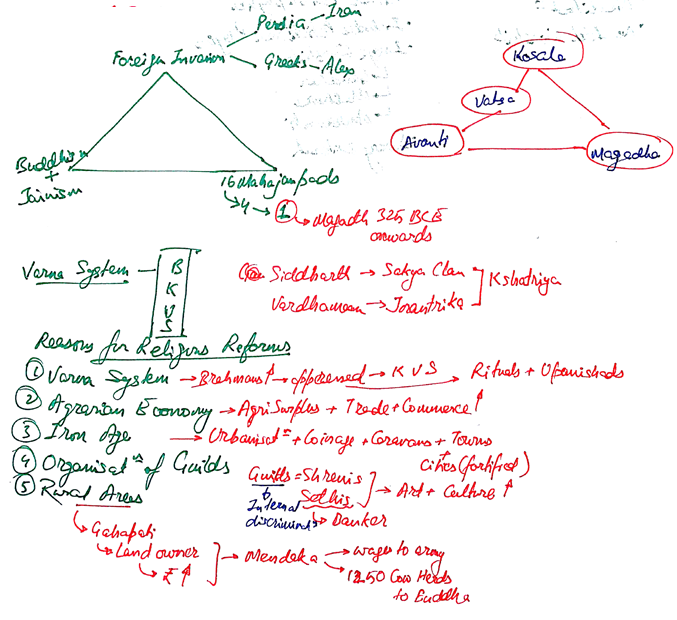 Persia - Iran
Foreign Invasion
Greeks - Alex
Kosala
Vatsa
Avanti
Magadha
Buddhism
+
Jainism
16 Mahajanpads
↳ 4 → 1
↳ Magadh 325 BCE
onwards
Varna System — B
K
V
S
Siddharth → Sakya Clan
Vardhamaan → Jnantrika
Kshatriya
Reasons for Religious Reforms
① Varna System → Brahmans↑ → oppressed → K V S → Rituals + Upanishads
② Agrarian Economy → Agri Surplus + Trade + Commerce ↑
③ Iron Age → Urbanisatⁿ + Coinage + Caravans + Towns
+
Cities (fortified)
④ Organisatⁿ of Guilds
Guilds = Shrenis
Sethis
→ Art + Culture ↑
Internal
↳ Banker
⑤ Rural Areas
↳ Gahapati
↳ Land owner
↳ ₹ ↑
→ Mendaka → wages to army
→ 1250 Cow Herds
to Buddha